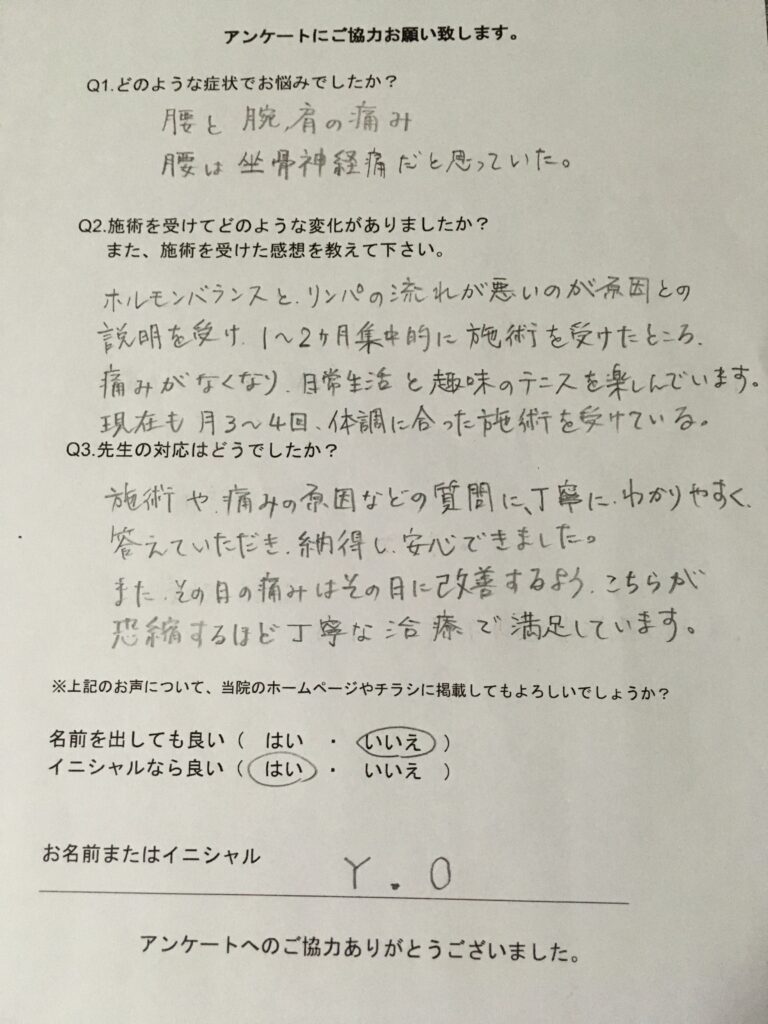 アンケートにご協力お願い致します。
Q1.どのような症状でお悩みでしたか？
腰と腕、肩の痛み
腰は坐骨神経痛だと思っていた。
Q2.施術を受けてどのような変化がありましたか？
また、施術を受けた感想を教えて下さい。
ホルモンバランスと、リンパの流れが悪いのが原因との
説明を受け、1〜2ヶ月集中的に施術を受けたところ、
痛みがなくなり、日常生活と趣味のテニスを楽しんでいます。
現在も月3〜4回、体調に合った施術を受けている。
Q3.先生の対応はどうでしたか？
施術や、痛みの原因などの質問に、丁寧に、わかりやすく、
答えていただき、納得し、安心できました。
また、その日の痛みはその日に改善するよう、こちらが
恐縮するほど丁寧な治療で満足しています。
※上記のお声について、当院のホームページやチラシに掲載してもよろしいでしょうか？
名前を出しても良い（ はい ・ いいえ ）
イニシャルなら良い（ はい ・ いいえ ）
お名前またはイニシャル Y.O
アンケートへのご協力ありがとうございました。